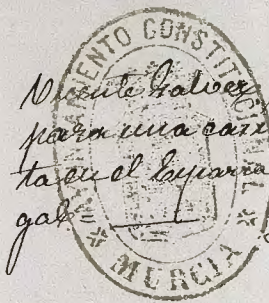 AYUNTAMIENTO CONSTITUCIONAL
* MURCIA *
Vicente Galvez
para una carre
ta en el Esparra
gal